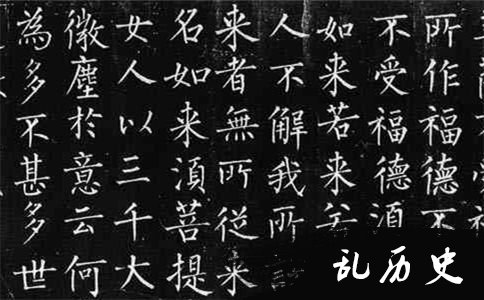 所作福德不
不受福德須
如来若来若
人不解我所
来者無所從来
名如来須菩提
女人以三千大
微塵於意云何
為多不甚多世
乱历史